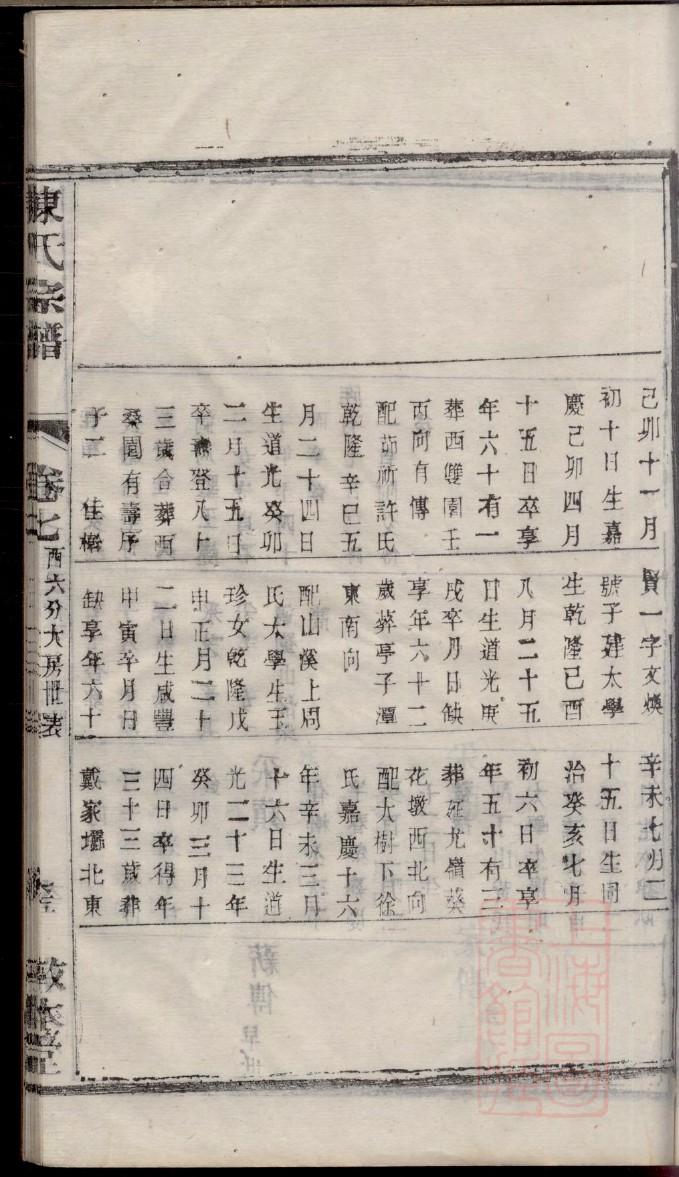 己卯十一月
初十日生嘉
慶己卯四月
十五日卒享
年六十有一
葬西雙園壬
丙向有傳
配茆祈許氏
乾隆辛巳五
月二十四日
生道光癸卯
二月十五日
卒壽登八十
三歲合葬西
桑園有壽序
子二 佳榴
賢一字文煥
號子建太學
生乾隆己酉
八月二十五
日生道光庚
戌卒月日缺
享年六十二
歲葬亭子潭
東南向
配山溪上周
氏太學生玉
珍女乾隆戊
申正月二十
二日生咸豐
甲寅卒月日
缺享年六十
辛未七月二
十五日生同
治癸亥七月
初六日卒享
年五十有三
葬延尤嶺葵
花墩西北向
配大樹下徐
氏嘉慶十六
年辛未三月
十六日生道
光二十三年
癸卯三月十
四日卒得年
三十三歲葬
戴家壩北東
陳氏宗譜
卷七
西六分大房世表
敬本堂